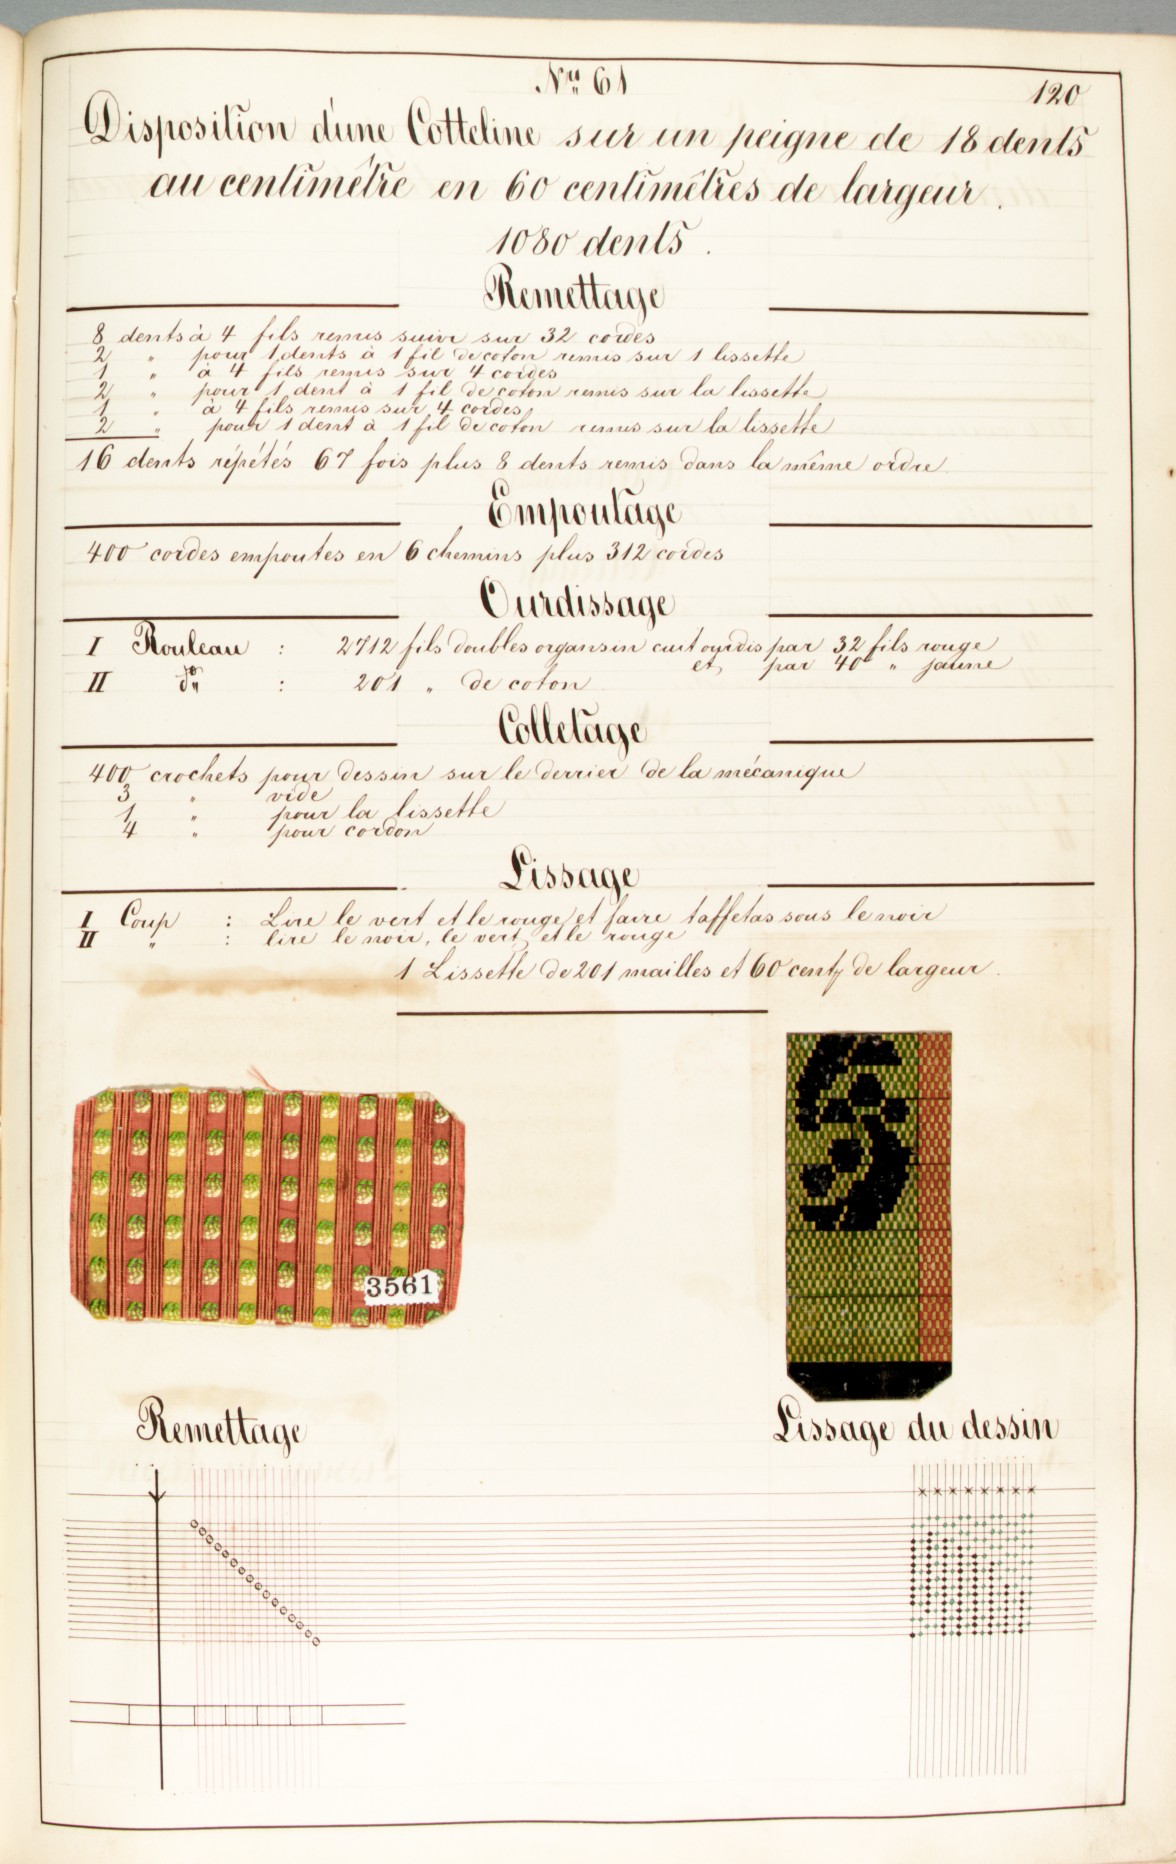 Nº 61
120
Disposition d'une Cotteline sur un peigne de 18 dents
au centimétre en 60 centimêtres de largeur.
1080 dents.
Remettage
8 dents à 4 fils remis suivi sur 32 cordes
2 " pour 1 dents à 1 fil de coton remis sur 1 lissette
1 " à 4 fils remis sur 4 cordes
2 " pour 1 dent à 1 fil de coton remis sur la lissette
1 " à 4 fils remis sur 4 cordes
2 " pour 1 dent à 1 fil de coton remis sur la lissette
16 dents répétés 67 fois plus 8 dents remis dans la même ordre
Empoutage
400 cordes empoutes en 6 chemins plus 312 cordes
Ourdissage
I Rouleau : 2712 fils doubles organsin cuit ourdis par 32 fils rouge
et par 40 " jaune
II dº : 201 " de coton
Colletage
400 crochets pour dessin sur le derrier de la mécanique
3 " vide
1 " pour la lissette
4 " pour cordon
Lissage
I Coup : Lire le vert et le rouge, et faire taffetas sous le noir
II " : lire le noir, le vert et le rouge
1 Lissette de 201 mailles et 60 cent de largeur.
3561
Remettage
Lissage du dessin